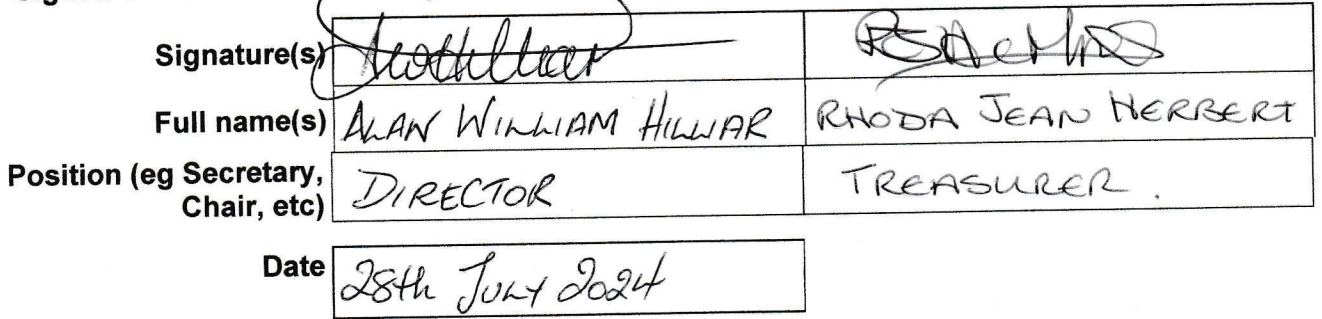 Signature(s)
Full name(s) ALAN WILLIAM HILLIAR RHODA JEAN HERBERT
Position (eg Secretary, DIRECTOR TREASURER.
Chair, etc)
Date 28th July 2024